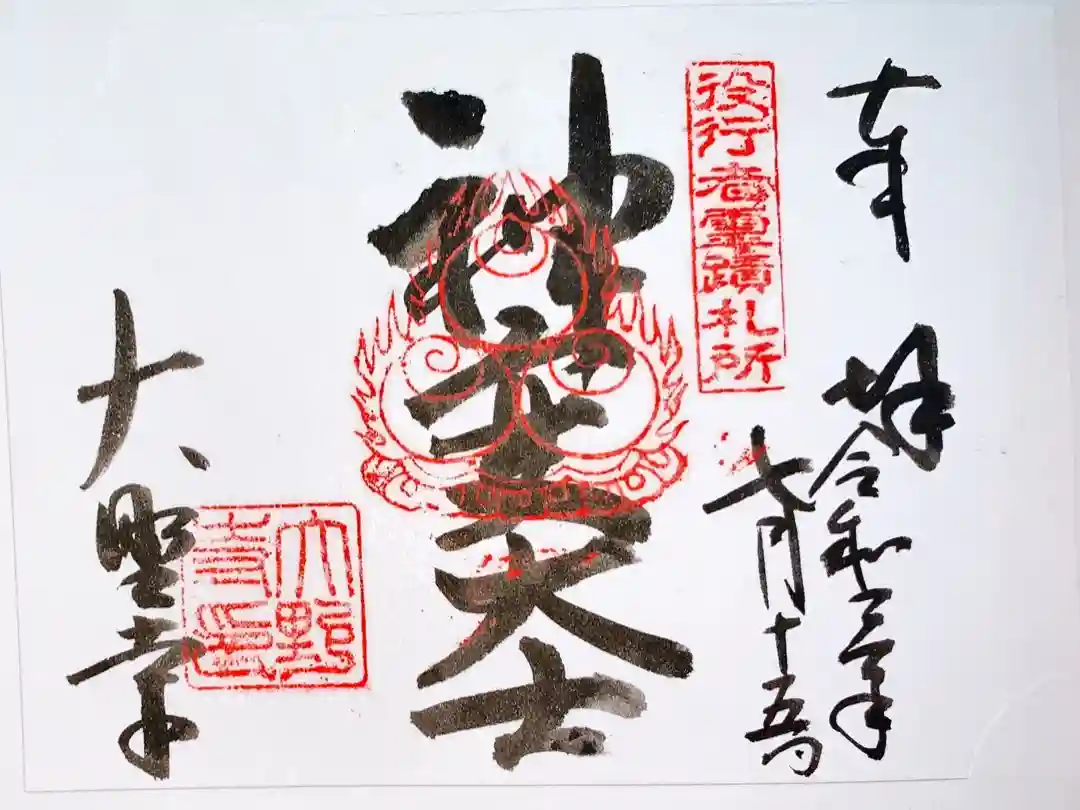 奉拝
令和年
七月十五日
役行者霊蹟札所
神変大士
大野寺
大野寺印